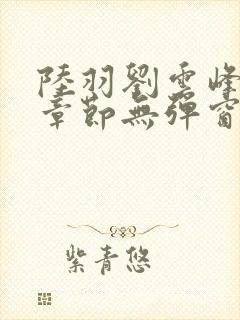 陸羽劉雲峰
章節無彈窗
紫青悠